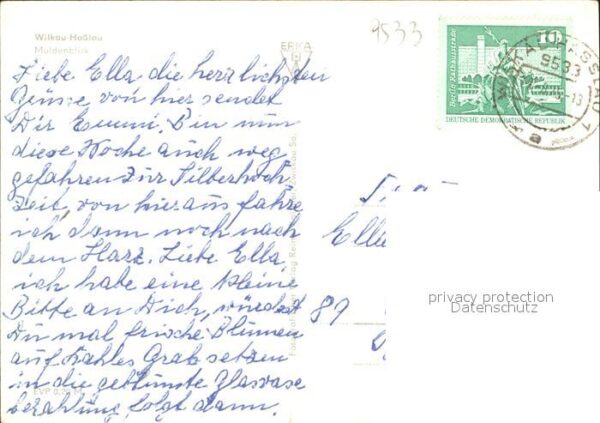 Wilkau-Haßlau
Muldenblick
9533
ERKA
Liebe Ella die herzlichsten
Grüsse von hier sendet
Dir Emmi. Bin nun
diese Woche auch weg
gefahren zur Silberhoch
zeit, von hier aus fahre
ich dann noch nach
dem Harz. Liebe Ella
ich habe eine kleine
Bitte an Dich, würdest
Du mal frische Blumen
auf Kahles Grab setzen
in die getrümte Glasvase
bezahlung folgt dann.
EVP 0,20 M
10
Berlin, Rathausstraße
DEUTSCHE DEMOKRATISCHE REPUBLIK
WILKAU-HASSLAU 1
9533
a
Frau
Ella
89
privacy protection
Datenschutz